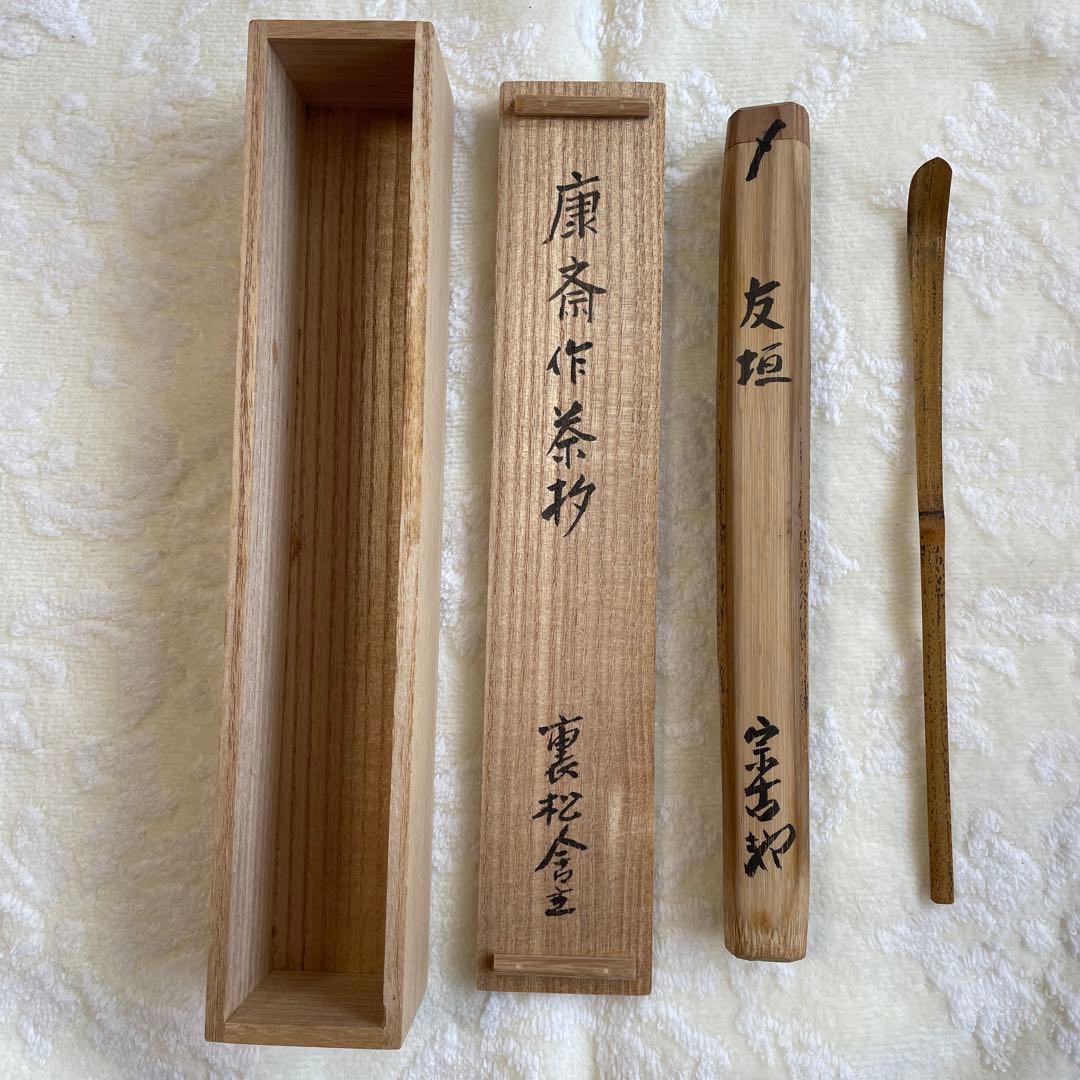 康斎作茶杓
裏松舎主
〆
友垣
宗吉